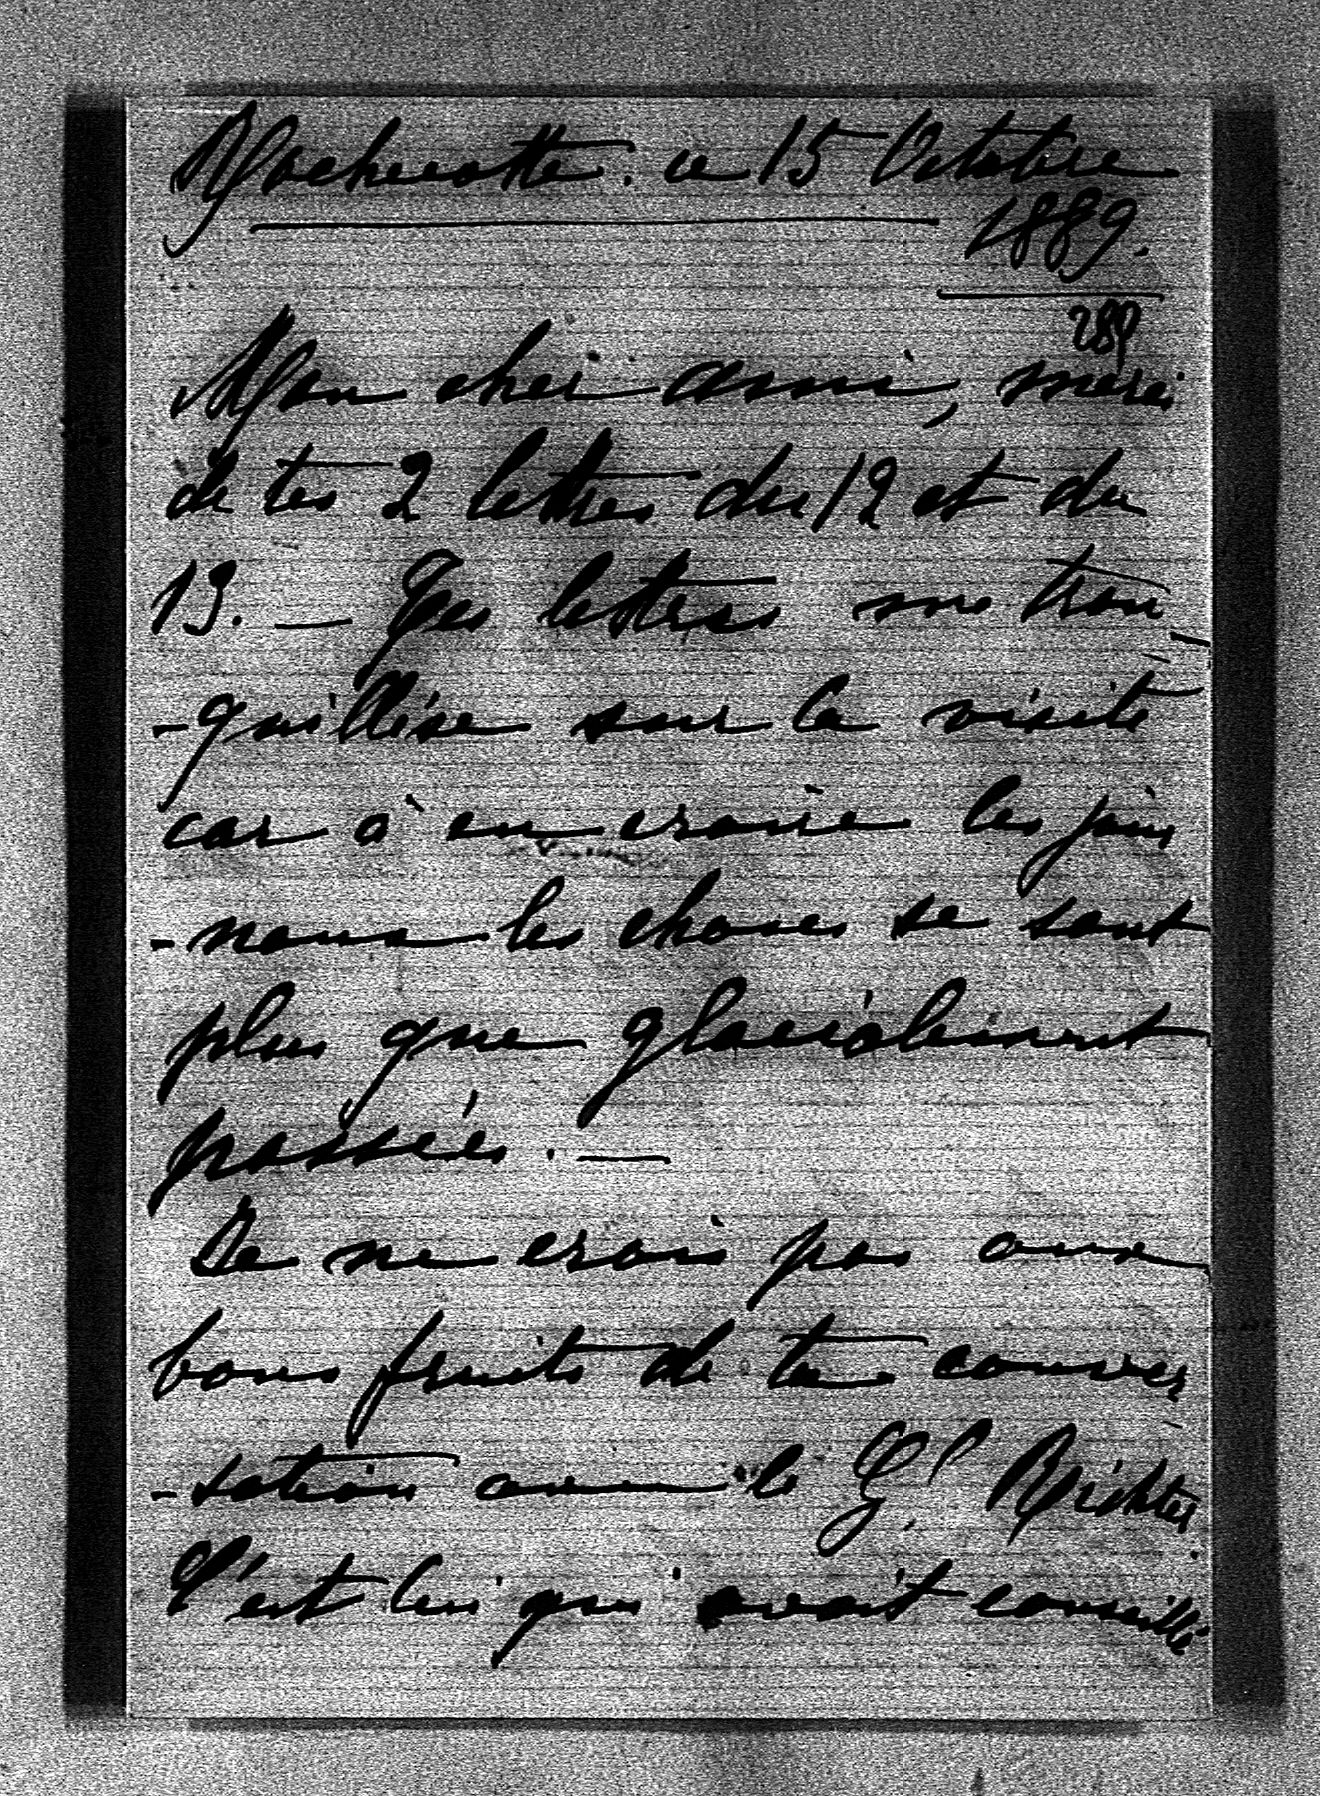 Rochecotte. ce 15 Octobre
1889.
289
Mon cher ami, merci
de tes 2 lettres du 12 et du
13. — Tes lettres me tran
-quillise sur la visite
car à en croire les jour
-naux les choses se sont
plus que glacialement
passées. —
Je ne crois pas aux
bons fruits de ta conver
-sation avec le Gl Richter.
C'est lui qui avait conseillé